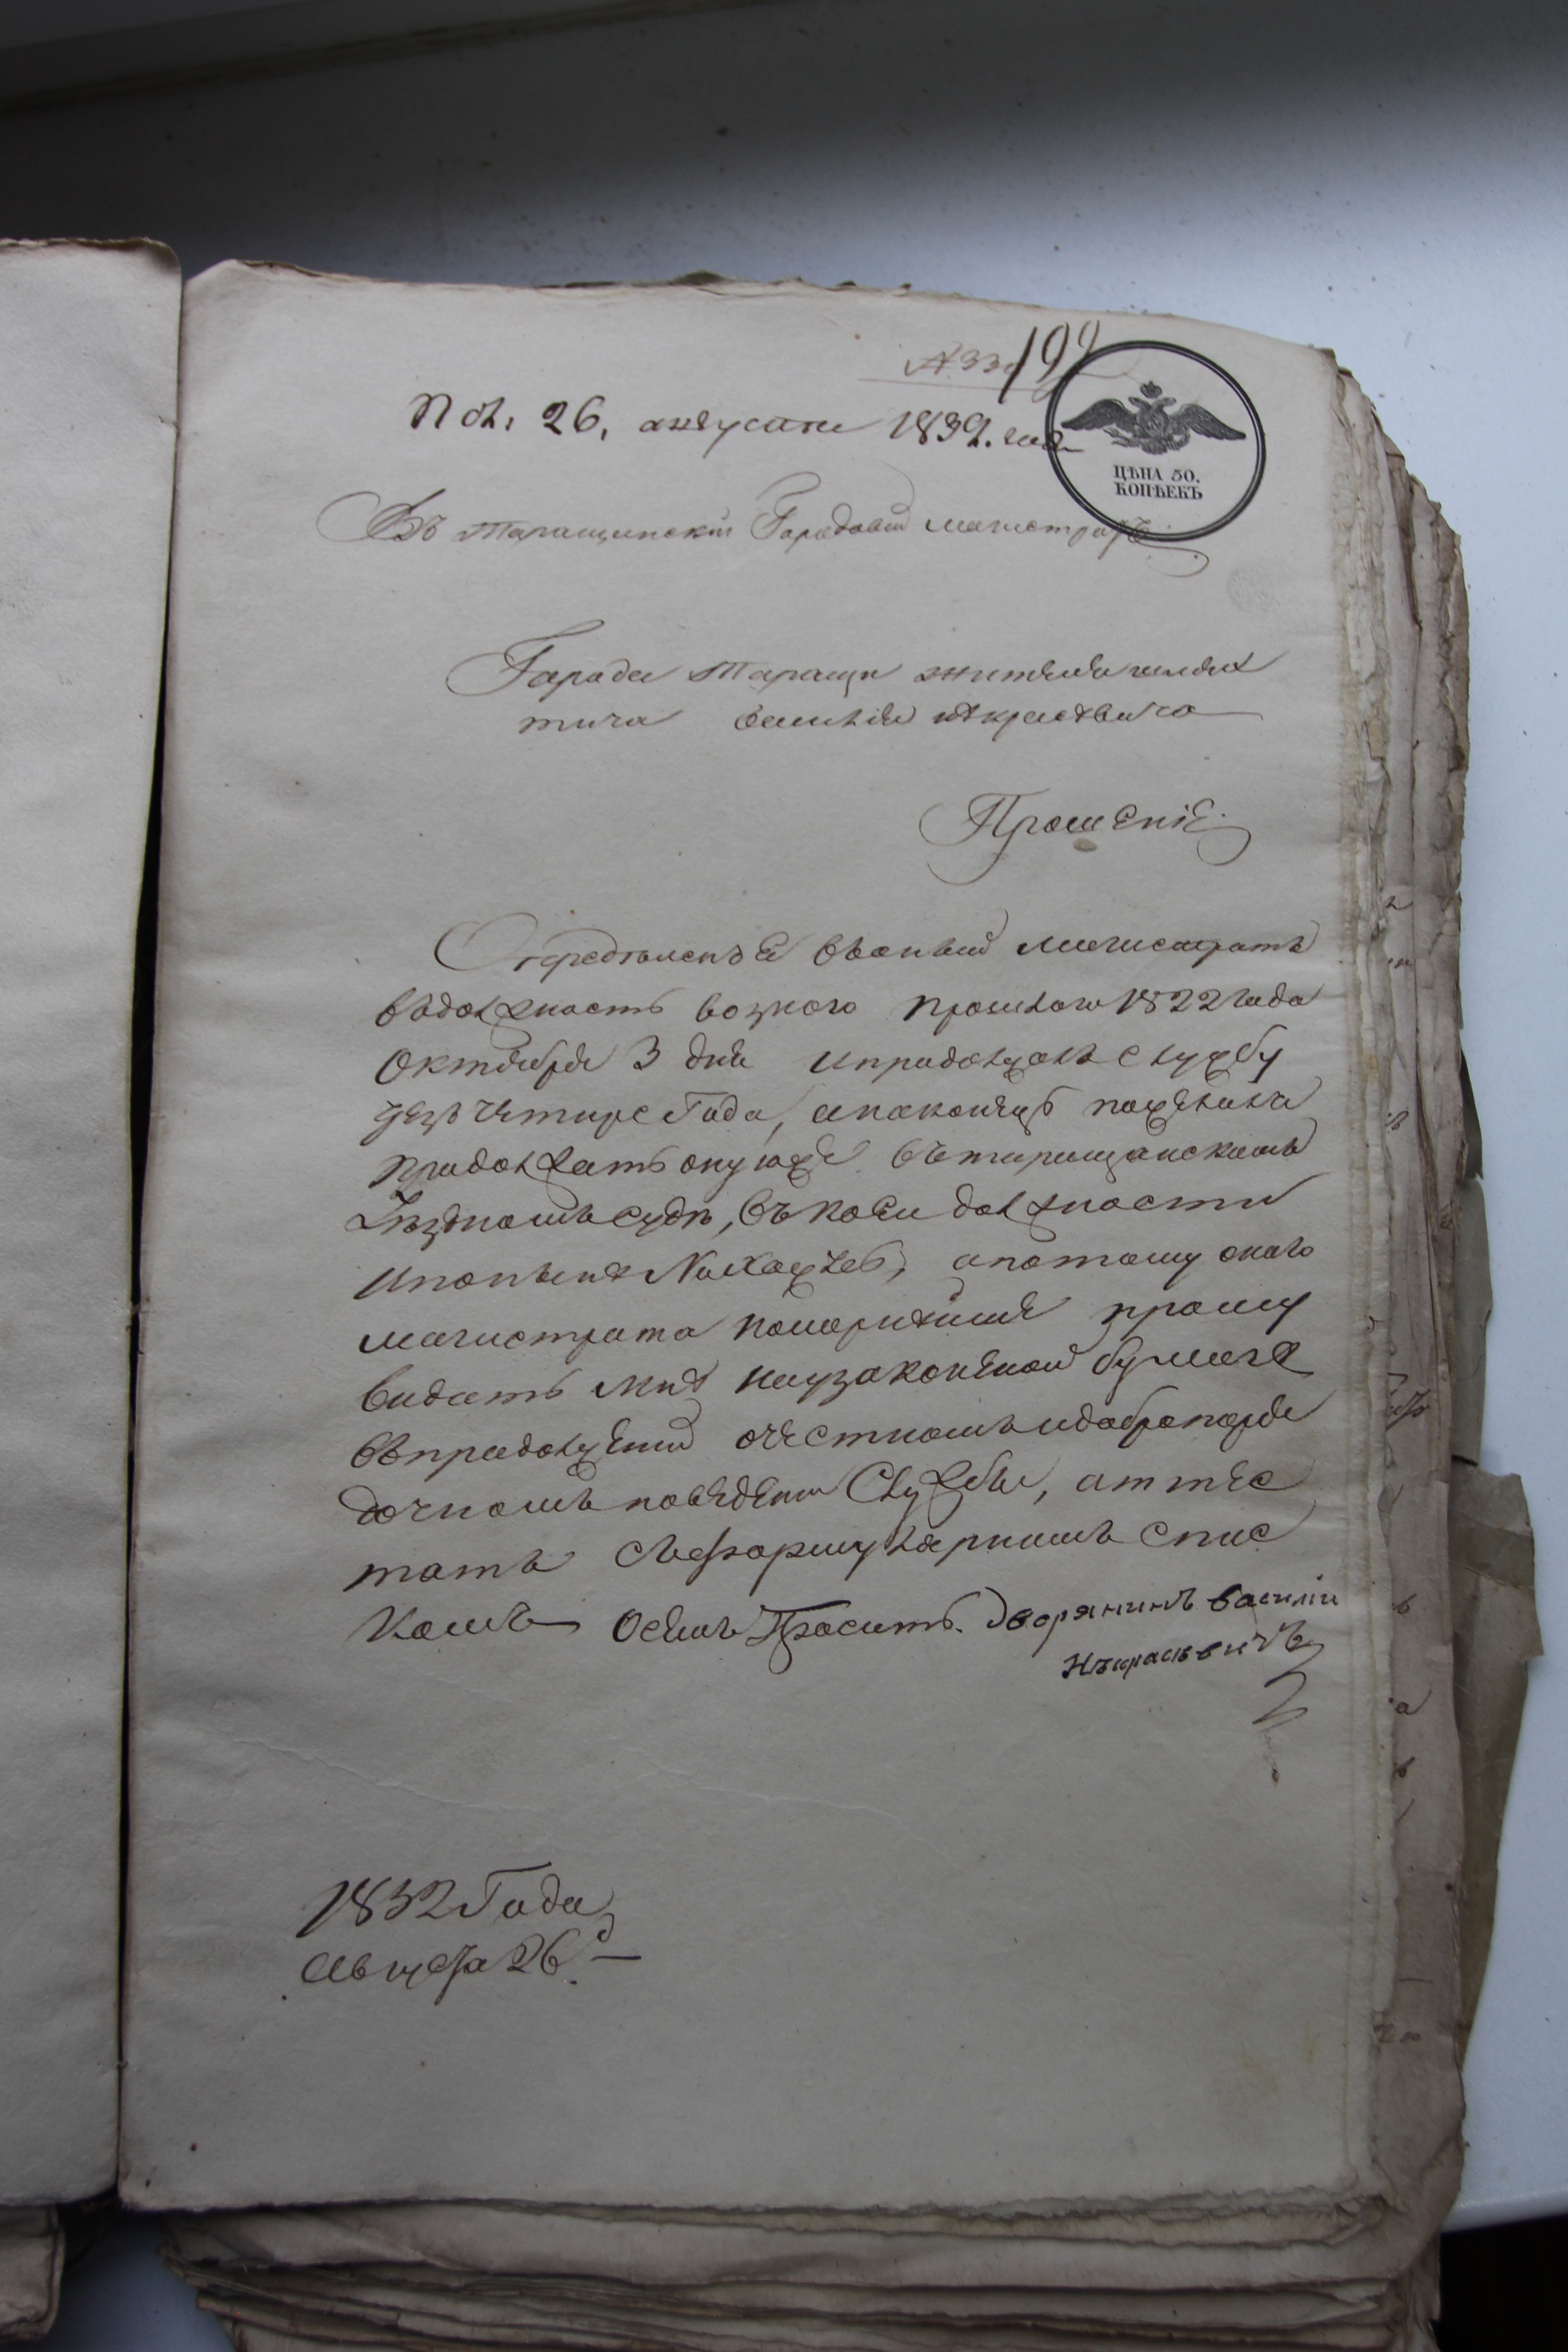 199
Пол. 26, августа 1832. года
ЦѢНА 50.
КОПѢЕКЪ
Въ Таращинскій Городовій магистратъ
Города Таращи жителя шлях
тича Василія Некрасевича
Прошеніе.
Опредѣленъ въ оный магистратъ
въ должность возного прошлого 1822 года
Октября 3 дня и продолжалъ службу
чрезъ четире Года, а наконецъ пожелалъ
продолжать оную же въ таращанскомъ
Уѣздномъ судѣ, въ коей должности
и понынѣ нахожусь, а потому оного
магистрата покорнѣйше прошу
видать мнѣ на узаконеной бумаге
въ продолженіи о честномъ и добропоря
дочномъ поведеніи Службы, аттес
татъ съ формулярнимъ спис
комъ О семъ Проситъ. Дворянинъ Василій
Нѣкрасѣвичъ
1832 Года
Августа 26